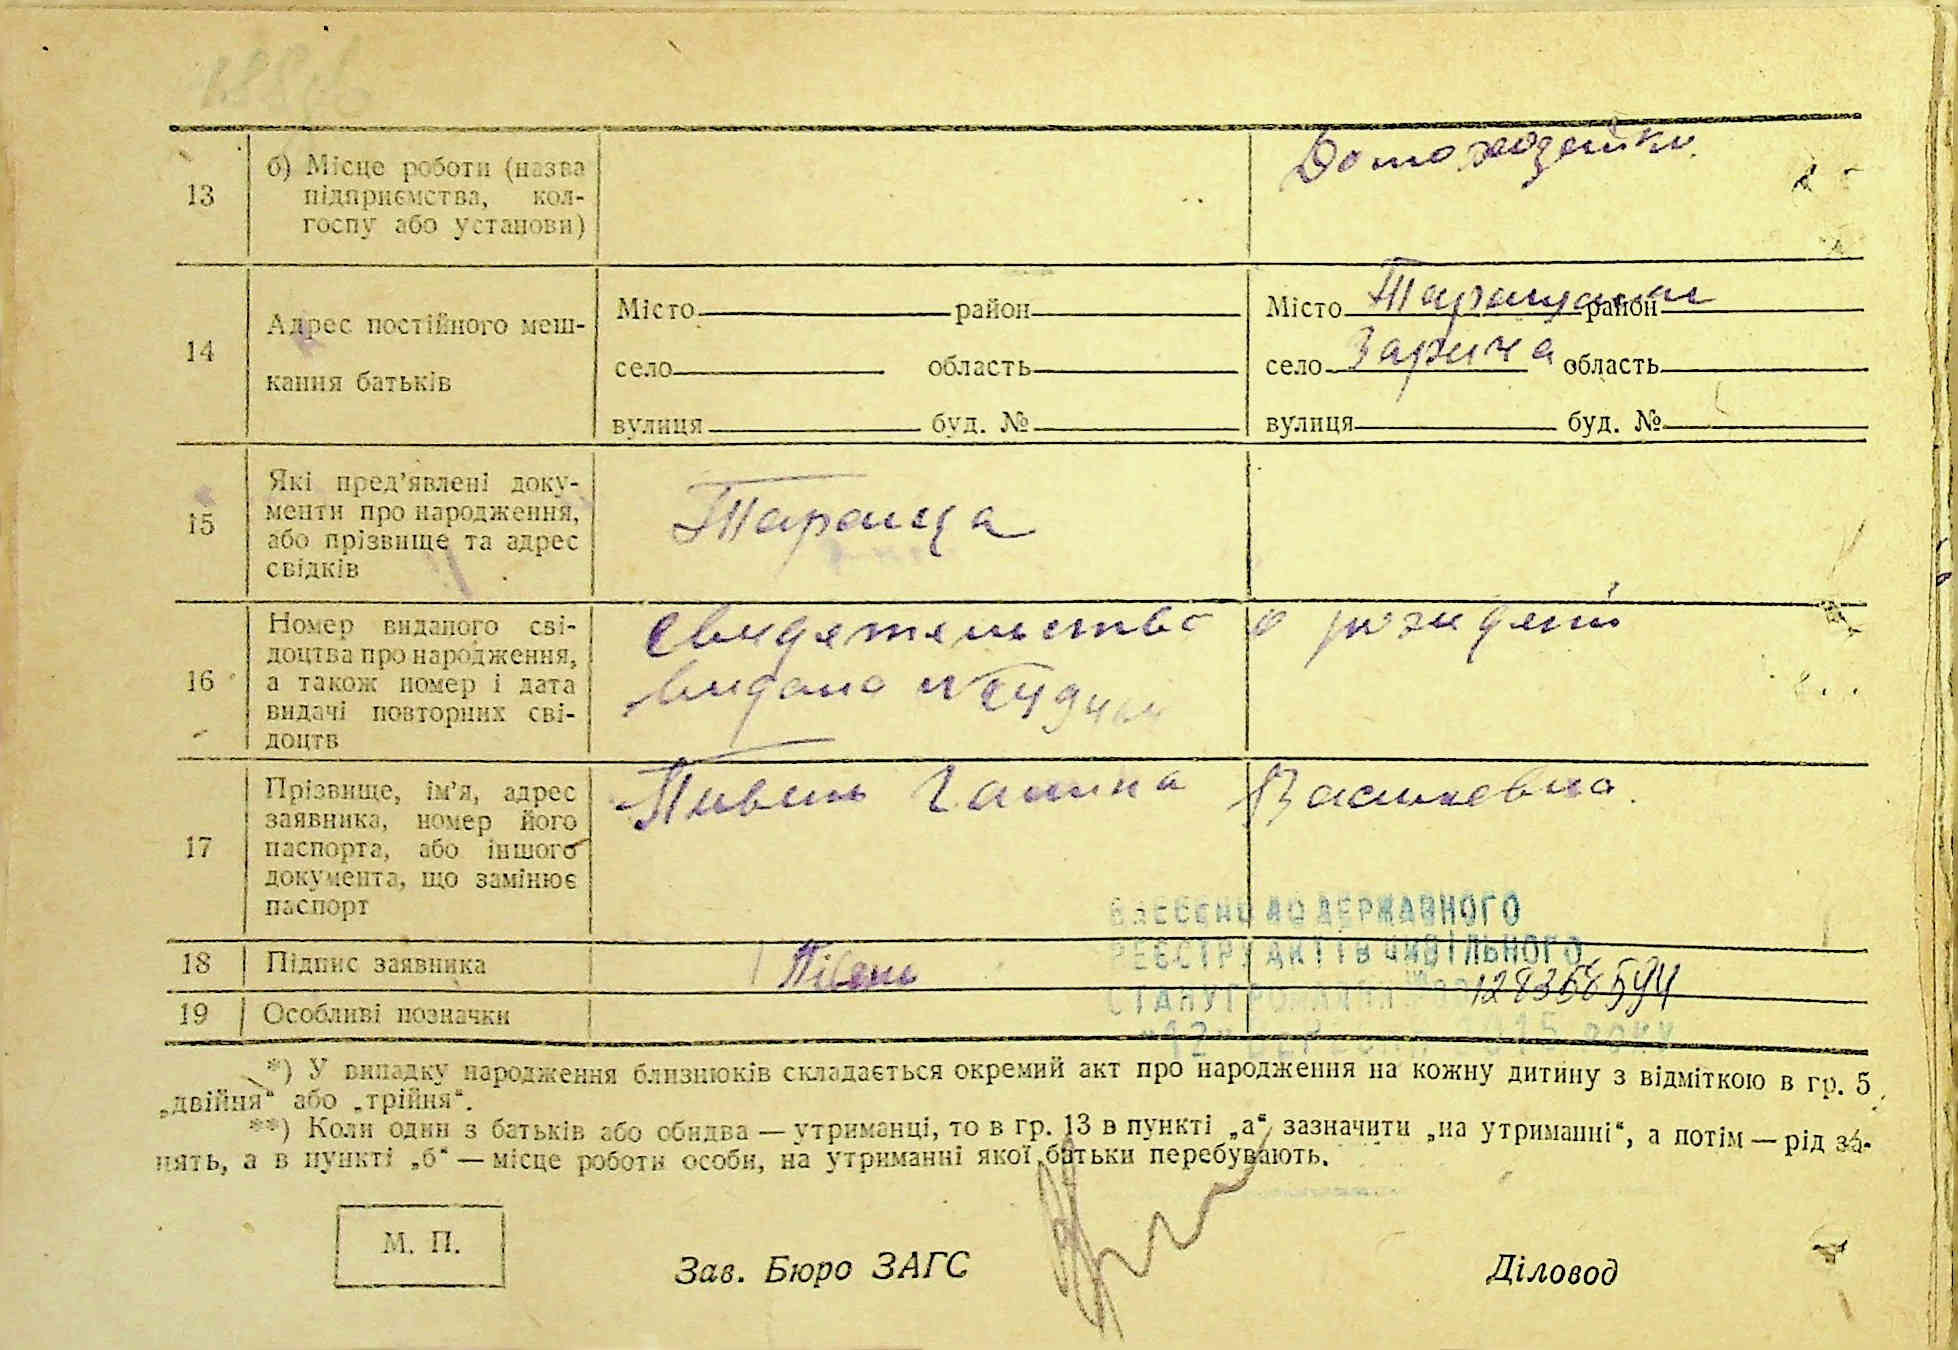 13
б) Місце роботи (назва
підприємства, кол-
госпу або установи)
Домохозяйка
14
Адрес постійного меш-
кання батьків
Місто район
село область
вулиця буд. №
Місто Таращанс район
село Зарича область
вулиця буд. №
15
Які пред'явлені доку-
менти про народження,
або прізвище та адрес
свідків
Тараща
16
Номер виданого сві-
доцтва про народження,
а також номер і дата
видачі повторних сві-
доцтв
свидетельство о рождени
видано
17
Прізвище, ім'я, адрес
заявника, номер його
паспорта, або іншого
документа, що замінює
паспорт
Пивень Галина Васильевна.
18
Підпис заявника
Півень
19
Особливі позначки
ВНЕСЕНО ДО ДЕРЖАВНОГО
РЕЄСТРУ АКТІВ ЦИВІЛЬНОГО
СТАНУ ГРОМАДЯН
"12" 2015 РОКУ
*) У випадку народження близнюків складається окремий акт про народження на кожну дитину з відміткою в гр. 5
„двійня“ або „трійня“.
**) Коли один з батьків або обидва — утриманці, то в гр. 13 в пункті „а“ зазначити „на утриманні“, а потім — рід за-
нять, а в пункті „б“ — місце роботи особи, на утриманні якої батьки перебувають.
М. П.
Зав. Бюро ЗАГС
Діловод